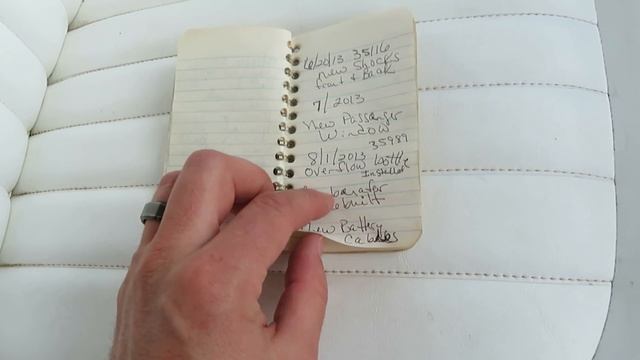 6/20/13 35116
New Shocks
front & Back
7/2013
New Passenger
Window
35989
8/1/2013
Overflow bottle
Installed
Rebuilt
New Battery
Cables